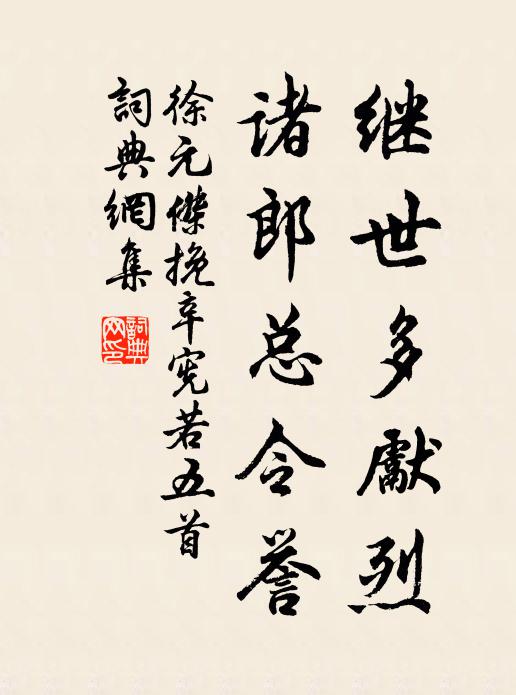 继世多獻烈
诸郎总令誉
徐元傑挽辛宪若五首
詞典網集
詞典网印